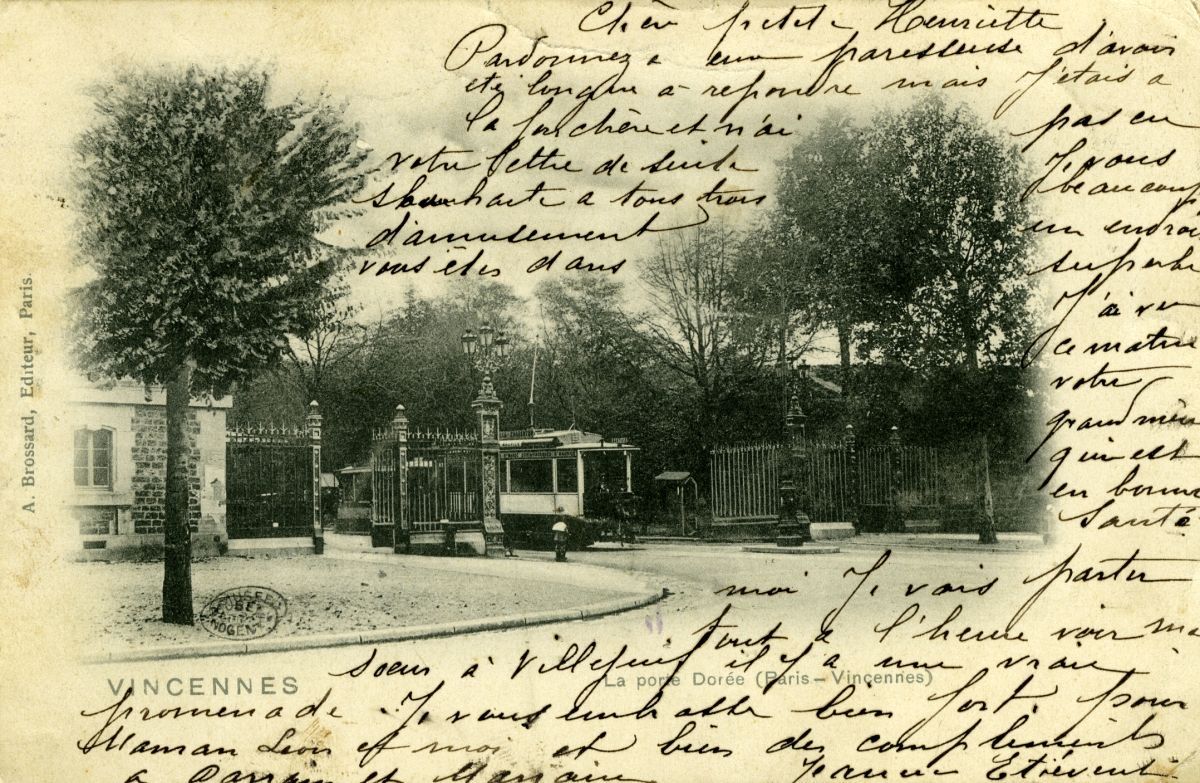 Chère petite Henriette
Pardonnez a une paresseuse d'avoir
eté longue a repondre mais J'etais a
la fourchère et n'ai pas eu
votre lettre de suite Je vous
souhaite a tous trois beaucoup
d'amusement un endroi
vous êtes dans superbe
J'ai vu
ce matin
votre
grand mère
qui est
en bonne
Santé
moi Je vais partir
tout a l'heure voir ma
soeur à Villejuif il y a une vraie
promenade. Je vous embrasse bien fort. pour
Maman Leon et moi et bien des complements
a Parrain et Marraine Jeanne Etiévent
A. Brossard, Editeur, Paris.
VINCENNES
La porte Dorée (Paris – Vincennes)
MUSÉE
DE
NOGENT